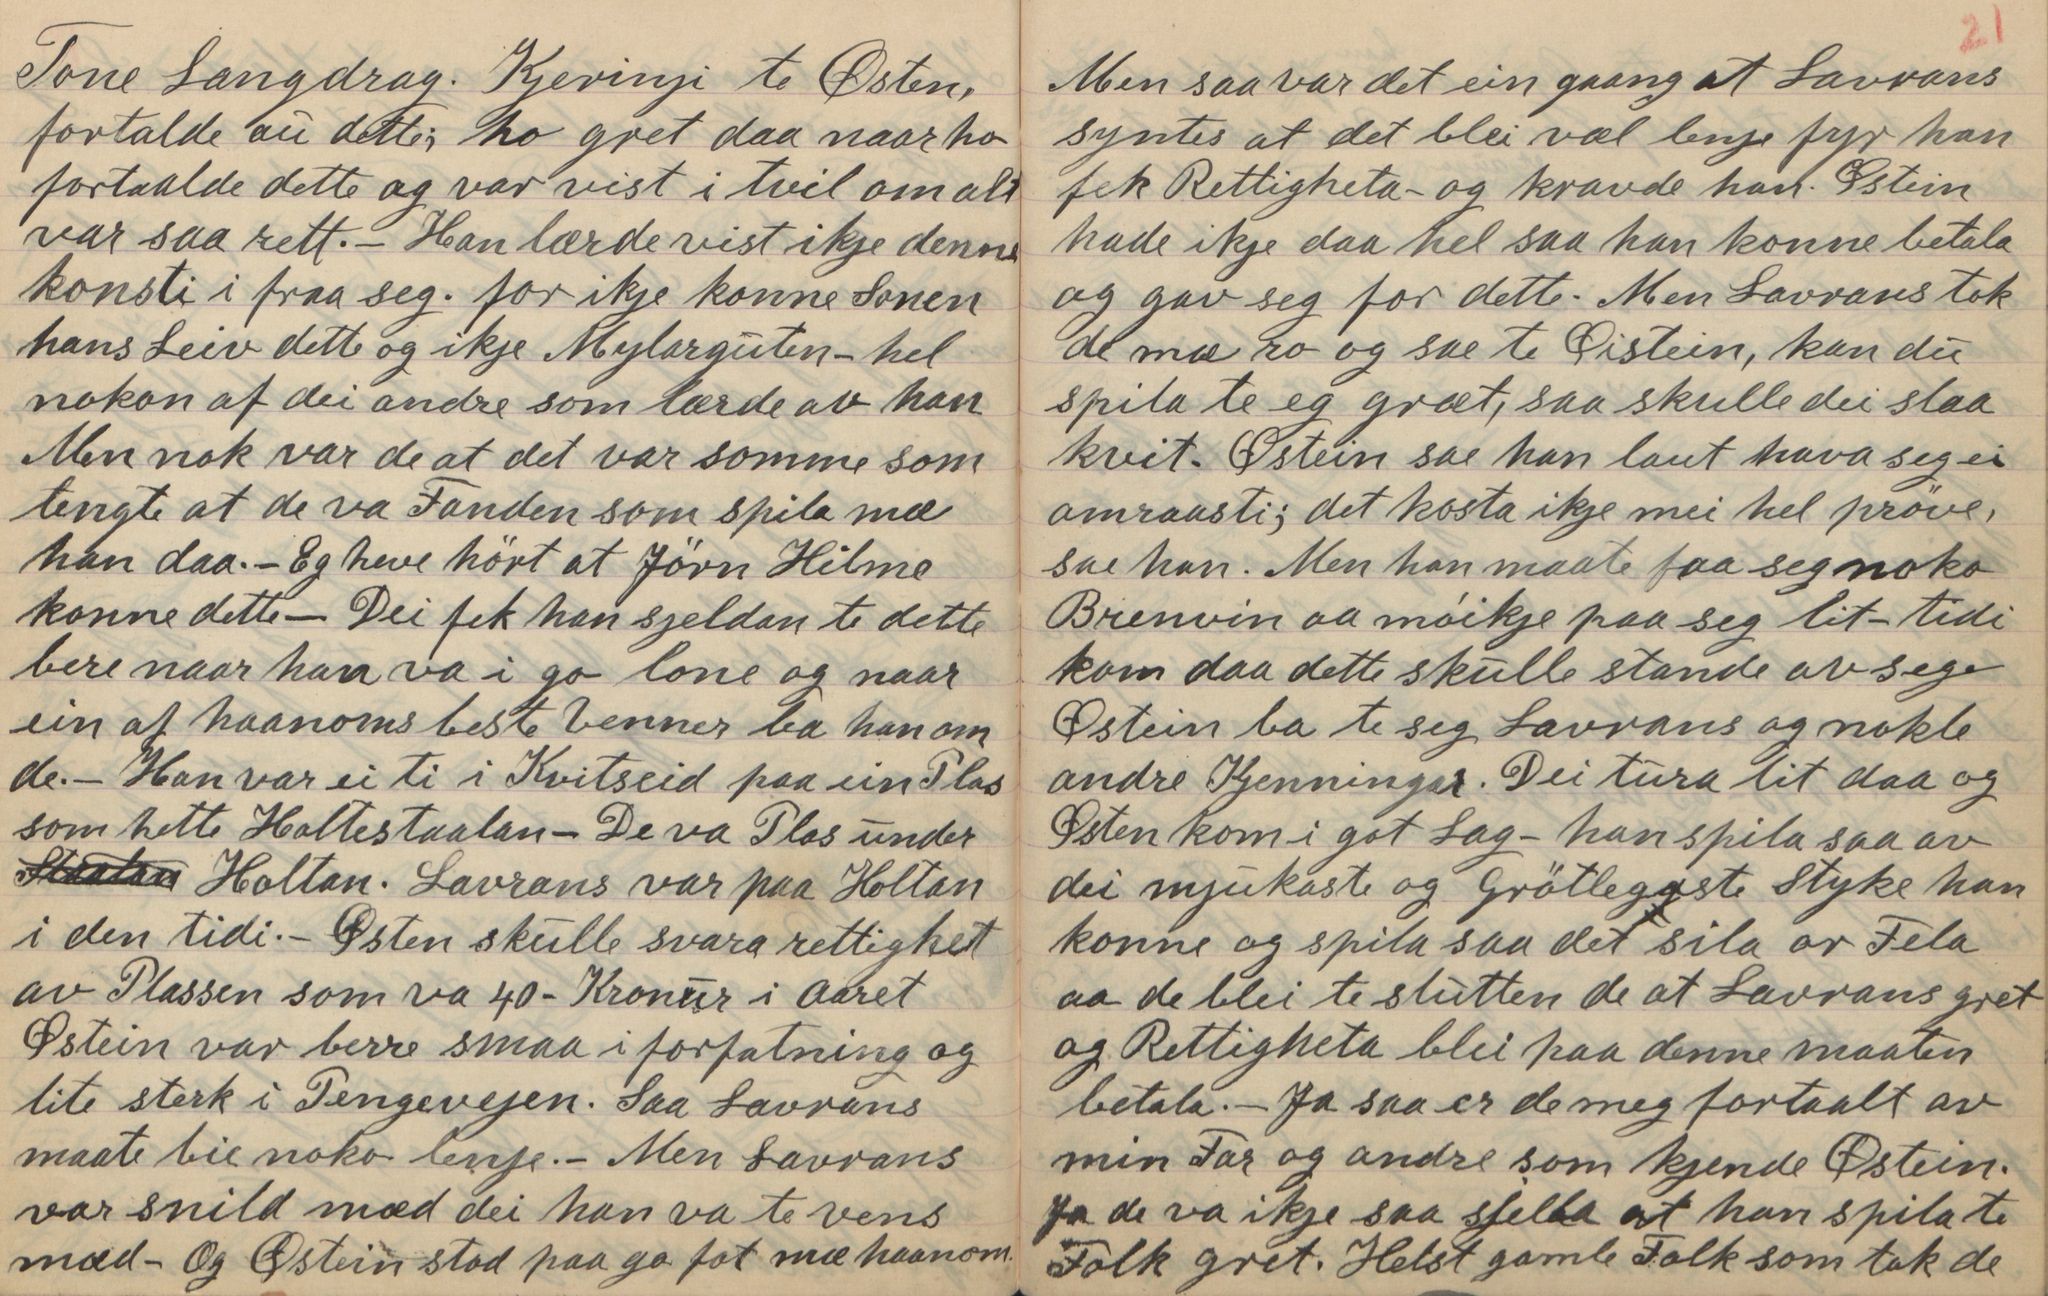 Tone Langdrag. Kjerinji te Østen,
fortalde aü dette; ho gret daa naar ho
fortaalde dette og var vist i tvil om alt
var saa rett. – Han lærde vist ikje denne
konsti i fraa seg. for ikje konne Sonen
hans Leiv dette og ikje Mylargüten – hel
nokon af dei andre som lærde av han
Men nok var de at det var somme som
tengte at de va Fanden som spila mæ
han daa. – Eg heve hört at Jörn Hilme
konne dette – Dei fek han sjeldan te dette
bere naar han va i go lone og naar
ein af haanoms beste Venner ba han om
de. – Han var ei ti i Kvitseid paa ein Plas
som hette Holtestaalan – De va Plas ünder
Staalan Holtan. Lavrans var paa Holtan
i den tidi. – Østen skülle svara rettighet
av Plassen som va 40 – Kronür i Aaret
Østein var berre smaa i forfatning og
lite sterk i Pengevejen. Saa Lavrans
maate bie noko lenje. – Men Lavrans
var snild mæd dei han va te vens
mæd – Og Østein stod paa go fot mæ haanom.
21
Men saa var det ein gaang at Lavrans
syntes at det blei væl lenje fyr han
fek Rettigheta – og kravde han. Østein
hade ikje daa hel saa han konne betala
og gav seg for dette. Men Lavrans tok
de mæ ro og sae te Øistein, kan dü
spila te eg græt, saa skulle dei slaa
kvit. Østein sae han laut hava seg ei
omraasti; det kosta ikje mei hel pröve,
sae han. Men han maate faa seg noko
Brenvin aa móikje paa seg lit – tidi
kom daa dette skülle stande av seg
Østein ba te seg Lavrans og nokle
andre Kjenningar. Dei türa lit daa og
Østen kom i got Lag – han spila saa av
dei mjükaste og Grötlegaste Styke han
konne og spila saa det sila or Fela
aa de blei te slütten de at Lavrans gret
og Rettigheta blei paa denne maaten
betala. – Ja saa er de meg fortaalt av
min Far og andre som kjende Østein.
Ja de va ikje saa sjelda at han spila te
Folk gret. Helst gamle Folk som tok de